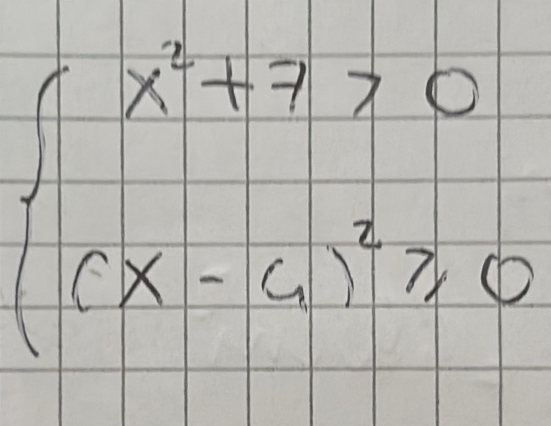 x² + 7 > 0
(x - 4)² ⩾ 0